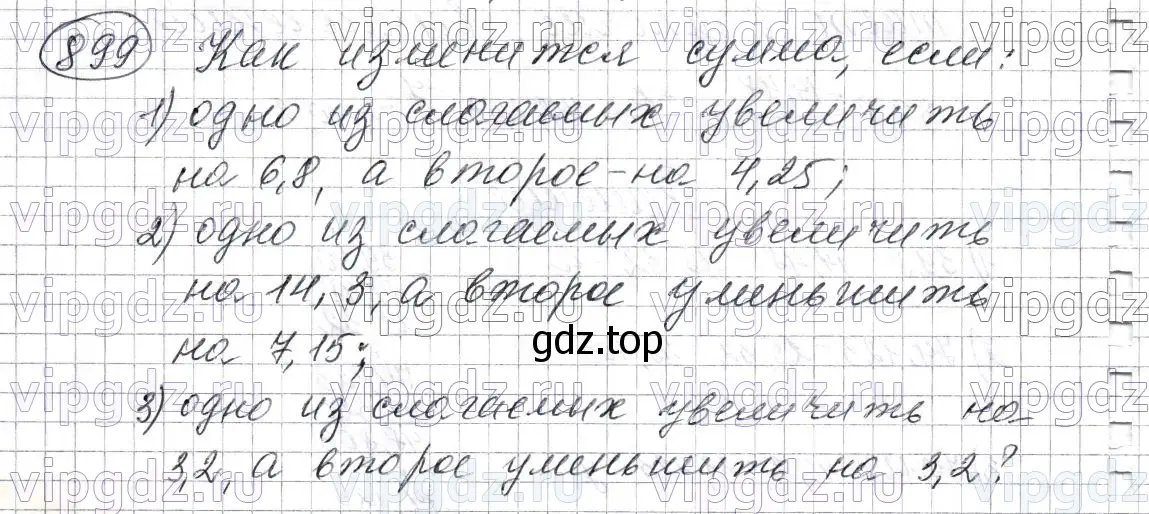 899 Как изменится сумма, если:
1) одно из слагаемых увеличить
на 6,8, а второе - на 4,25;
2) одно из слагаемых увеличить
на 14,3, а второе уменьшить
на 7,15;
gdz.top
3) одно из слагаемых увеличить на
3,2, а второе уменьшить на 3,2?